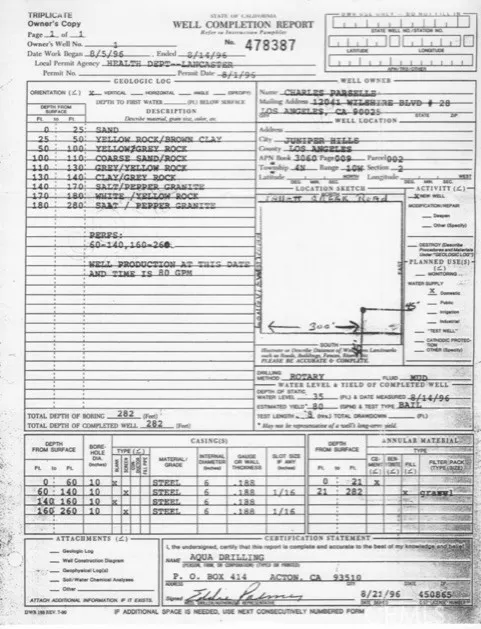 TRIPLICATE
Owner's Copy
Page 1 of 1
Owner's Well No. 1
Date Work Began 8/5/96 Ended 8/14/96
Local Permit Agency HEALTH DEPT--LANCASTER
Permit No. Permit Date 8/1/96
STATE OF CALIFORNIA
WELL COMPLETION REPORT
Refer to Instruction Pamphlet
No. 478387
STATE WELL NO./STATION NO.
LATITUDE LONGITUDE
APN/TRS/OTHER
GEOLOGIC LOG
ORIENTATION (∠) X VERTICAL HORIZONTAL ANGLE (SPECIFY)
DEPTH TO FIRST WATER (Ft.) BELOW SURFACE
DEPTH FROM SURFACE
Ft. to Ft.
DESCRIPTION
Describe material, grain size, color, etc.
0 25 SAND
25 50 YELLOW ROCK/BROWN CLAY
50 100 YELLOW/GREY ROCK
100 110 COARSE SAND/ROCK
110 130 GREY/YELLOW ROCK
130 140 CLAY/GREY ROCK
140 170 SALT/PEPPER GRANITE
170 180 WHITE /YELLOW ROCK
180 280 SALT / PEPPER GRANITE
PERFS:
60-140,160-260
WELL PRODUCTION AT THIS DATE
AND TIME IS 80 GPM
TOTAL DEPTH OF BORING 282 (Feet)
TOTAL DEPTH OF COMPLETED WELL 282 (Feet)
WELL OWNER
Name CHARLES PARSELLS
Mailing Address 12041 WILSHIRE BLVD # 28
LOS ANGELES, CA 90025
CITY STATE ZIP
WELL LOCATION
Address
City JUNIPER HILLS
County LOS ANGELES
APN Book 3060 Page 009 Parcel 002
Township 4N Range 10W Section 2
Latitude NORTH Longitude WEST
DEG. MIN. SEC. DEG. MIN. SEC.
LOCATION SKETCH
ACTIVITY (∠)
X NEW WELL
MODIFICATION/REPAIR
Deepen
Other (Specify)
DESTROY (Describe Procedures and Materials Under "GEOLOGIC LOG")
PLANNED USE(S) (∠)
MONITORING
WATER SUPPLY
X Domestic
Public
Irrigation
Industrial
"TEST WELL"
CATHODIC PROTECTION
OTHER (Specify)
EAST
300'
SOUTH
Illustrate or Describe Distance of Well from Landmarks
such as Roads, Buildings, Fences, Rivers, etc.
PLEASE BE ACCURATE & COMPLETE.
DRILLING METHOD ROTARY FLUID MUD
WATER LEVEL & YIELD OF COMPLETED WELL
DEPTH OF STATIC WATER LEVEL 35 (Ft.) & DATE MEASURED 8/14/96
ESTIMATED YIELD* 80 (GPM) & TEST TYPE BAIL
TEST LENGTH (Hrs.) TOTAL DRAWDOWN (Ft.)
* May not be representative of a well's long-term yield.
DEPTH FROM SURFACE
Ft. to Ft.
BORE-HOLE DIA. (Inches)
CASING(S)
TYPE (∠)
BLANK SCREEN FILL PIPE
MATERIAL/ GRADE
INTERNAL DIAMETER (Inches)
GAUGE OR WALL THICKNESS
SLOT SIZE IF ANY (Inches)
0 60 10 x STEEL 6 .188
60 140 10 x STEEL 6 .188 1/16
140 160 10 x STEEL 6 .188
160 260 10 x STEEL 6 .188 1/16
DEPTH FROM SURFACE
Ft. to Ft.
ANNULAR MATERIAL
TYPE
CEMENT BENTONITE FILL FILTER PACK (TYPE/SIZE)
0 21 x
21 282 x gravel
ATTACHMENTS (∠)
Geologic Log
Well Construction Diagram
Geophysical Log(s)
Soil/Water Chemical Analyses
Other
ATTACH ADDITIONAL INFORMATION, IF IT EXISTS.
CERTIFICATION STATEMENT
I, the undersigned, certify that this report is complete and accurate to the best of my knowledge and belief.
NAME AQUA DRILLING
(PERSON, FIRM, OR CORPORATION) (TYPED OR PRINTED)
P. O. BOX 414 ACTON, CA 93510
CITY STATE ZIP
Signed Eddie Palmer
WELL DRILLER/AUTHORIZED REPRESENTATIVE
8/21/96 450865
DATE SIGNED C-57 LICENSE NUMBER
DWR 188 REV. 7-90
IF ADDITIONAL SPACE IS NEEDED, USE NEXT CONSECUTIVELY NUMBERED FORM